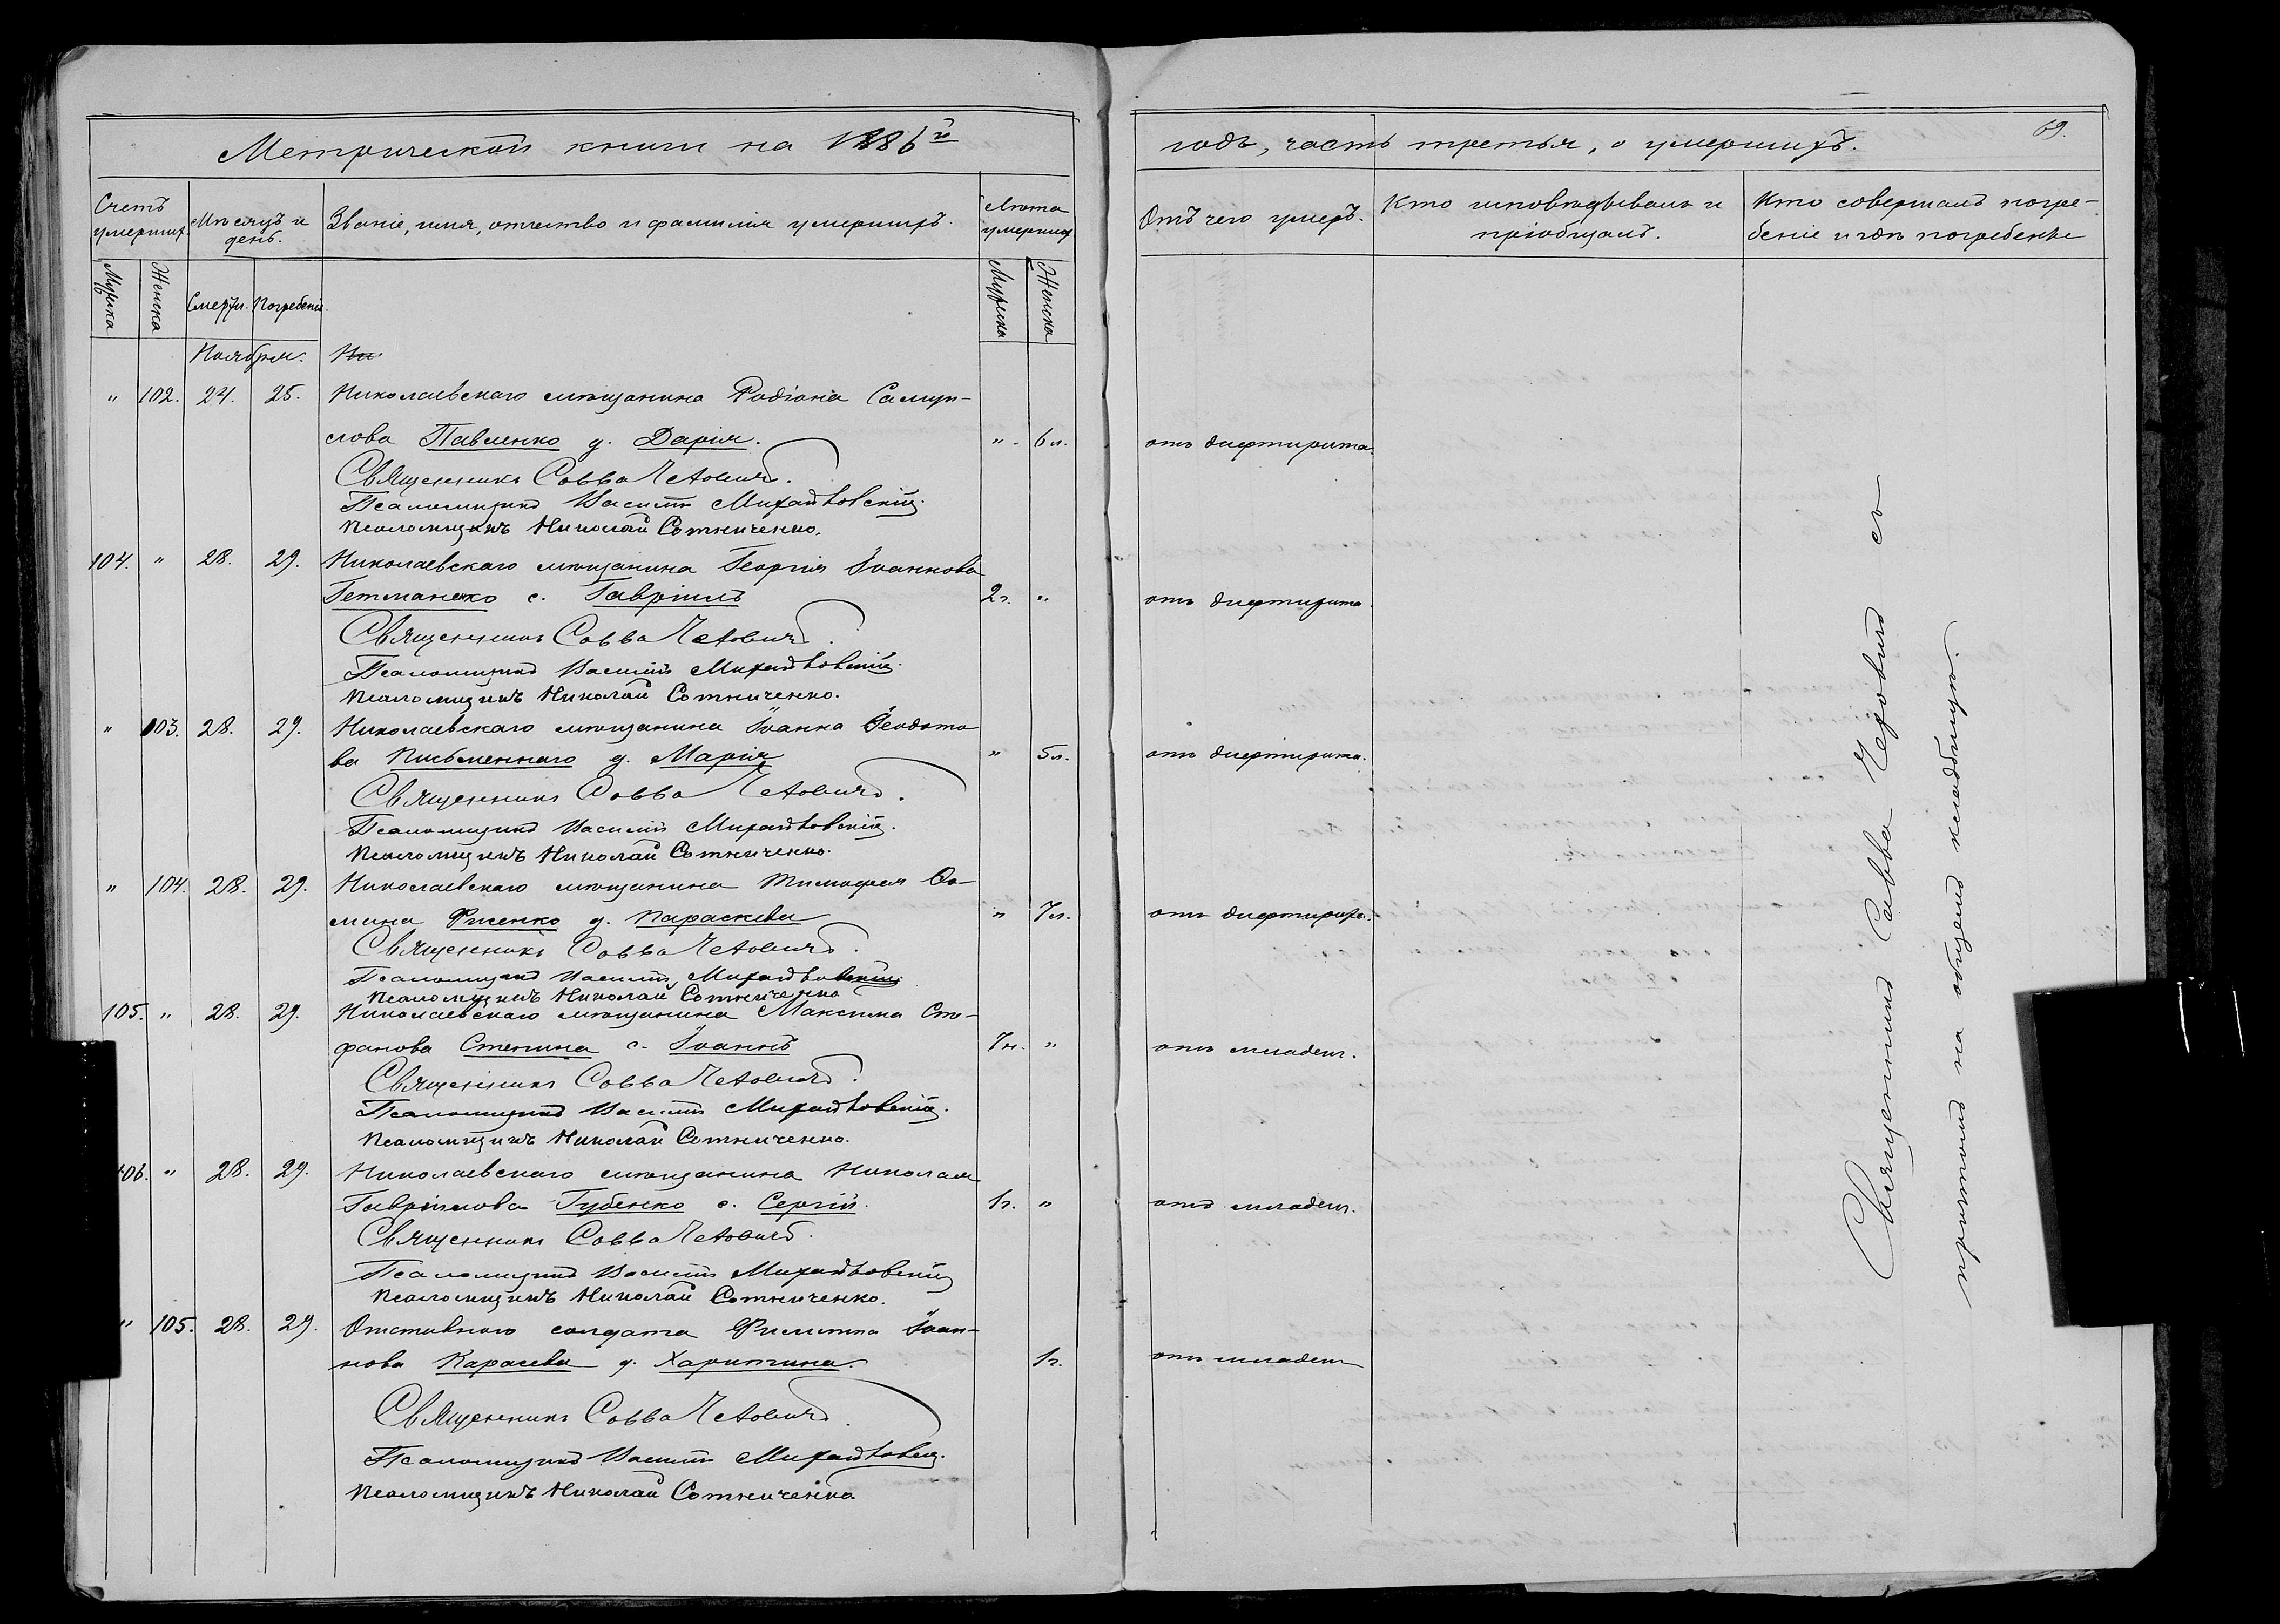 Метрической книги на 1886й
Счетъ умершихъ.
Мѣсяцъ и день.
Званіе, имя, отчество и фамилія умершихъ.
Лѣта умершихъ
Мужска
Женска
Смерти.
Погребенія.
Мужска
Женска
Ноября.
" 102. 24. 25. Николаевскаго мѣщанина Родіона Самуи-
лова Павленко д. Дарія. " 6 л.
Священникъ Савва
Псаломщикъ Василій
Псаломщикъ Николай Сотниченко.
104. " 28. 29. Николаевскаго мѣщанина Георгія Іоаннова
Гетманско с. Гавріилъ 2 г. "
Священникъ Савва
Псаломщикъ Василій
Псаломщикъ Николай Сотниченко.
" 103. 28. 29. Николаевскаго мѣщанина Іоанна Ѳеодото
ва Письменнаго д. Марія " 5 л.
Священникъ Савва
Псаломщикъ Василій
Псаломщикъ Николай Сотниченко.
" 104. 28. 29. Николаевскаго мѣщанина Тимоѳея Ѳо-
мина д. Параскева " 7 л.
Священникъ Савва
Псаломщикъ Василій
Псаломщикъ Николай Сотниченко
105. " 28. 29. Николаевскаго мѣщанина Максима Сте-
фанова Степина с. Іоаннъ 7 н. "
Священникъ Савва
Псаломщикъ Василій
Псаломщикъ Николай Сотниченко.
106. " 28. 29. Николаевскаго мѣщанина Николая
Гавріилова Губенко с. Сергій. 1 г. "
Священникъ Савва
Псаломщикъ Василій
Псаломщикъ Николай Сотниченко.
" 105. 28. 29. Отставного солдата Филиппа Іоан-
нова Карасева д. Харитина. 1 г.
Священникъ Савва
Псаломщикъ Василій
Псаломщикъ Николай Сотниченко.
69.
годъ, часть третья, о умершихъ.
Отъ чего умеръ.
Кто исповѣдывалъ и
пріобщалъ.
Кто совершалъ погре-
беніе и гдѣ погребены
отъ дифтирита.
отъ дифтирита.
отъ дифтирита.
отъ дифтирита.
отъ младен.
отъ младен.
отъ младен
Священникъ Савва съ
причтомъ на общемъ кладбищѣ.